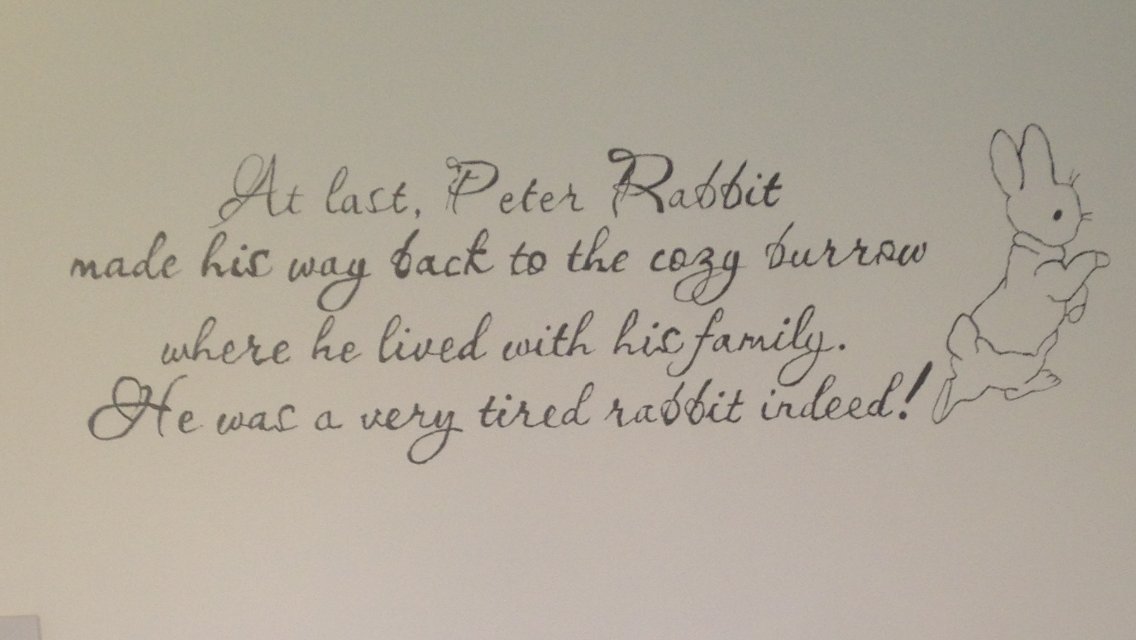 At last, Peter Rabbit
made his way back to the cozy burrow
where he lived with his family.
He was a very tired rabbit indeed!